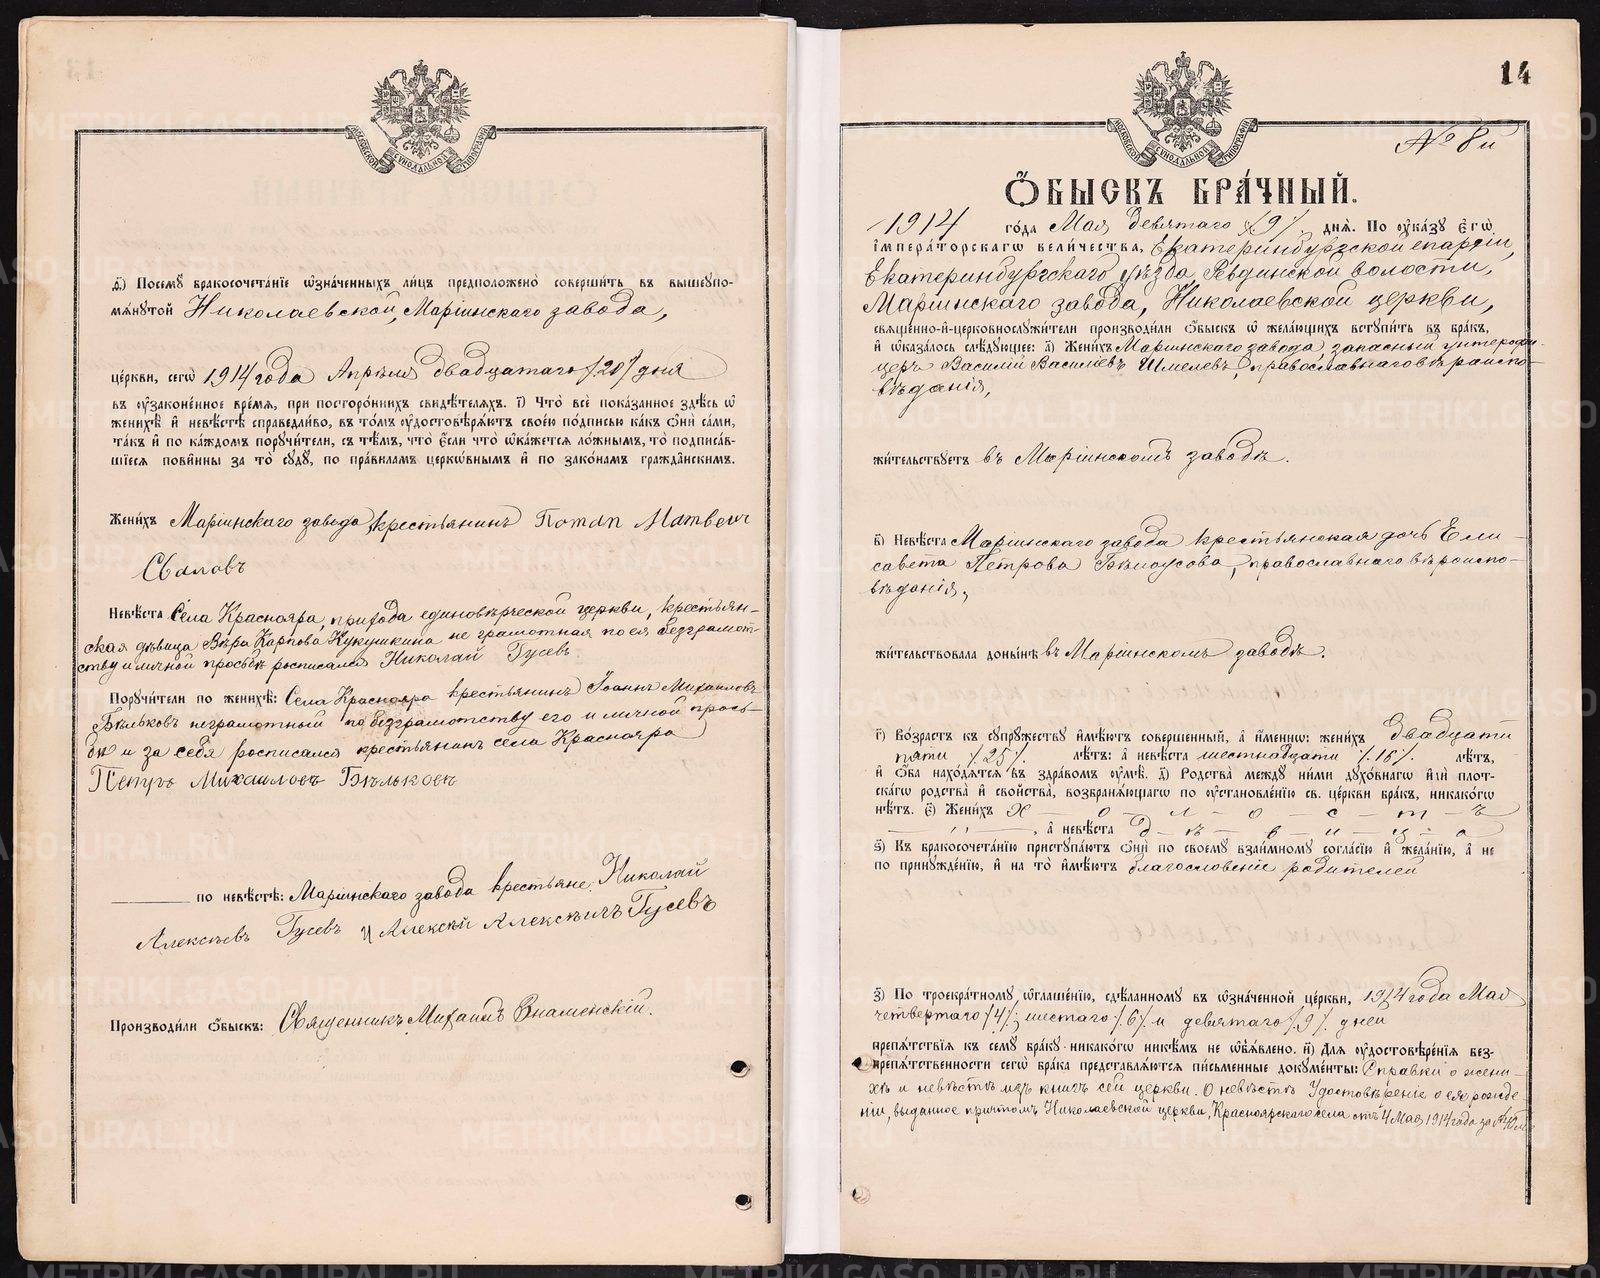 МОСКОВСКОЙ СѴНОДАЛЬНОЙ ТИПОГРАФІИ
д҃і) Посемꙋ бракосочета́нїе ѡ҆зна́ченныхъ ли́цъ предположено̀ соверши́ть въ вышеꙋпо-
мѧ́нꙋтой Николаевской, Маріинскаго завода,
це́ркви, сегѡ̀ 1914 года Апрѣля двадцатаго /20/ дня
въ ᲂу҆зако́ненное вре́мѧ, при посторо́ннихъ свидѣ́телѧхъ. і҃) Что̀ всѐ пока́занное здѣ́сь ѡ҆
женихѣ̀ и҆ невѣ́стѣ справедли́во, въ то́мъ ᲂу҆достовѣрѧ́ютъ свое́ю по́дписью ка́къ ѻ҆нѝ са́ми,
та́къ и҆ по ка́ждомъ порꙋчи́тели, съ тѣ́мъ, что̀ є҆́сли что̀ ѡ҆ка́жетсѧ ло́жнымъ, то̀ подписа́в-
шїесѧ пови́нны за то̀ сꙋдꙋ̀, по пра́виламъ церко́внымъ и҆ по зако́намъ гражда́нскимъ.
Жени́хъ Маріинскаго завода, крестьянинъ Потап Матвеич
Сваловъ
Невѣ́ста Села Краснояра, прихода единовѣрческой церкви, крестьян-
ская дѣвица Вѣра Карпова Кукушкина не грамотная по ея безграмот-
ству и личной просьбѣ росписался Николай Гусевъ
Порꙋчи́тели по женихѣ̀: Села Краснояра крестьянинъ Іоаннъ Михаиловъ
Бѣльковъ неграмотный по безграмотству его и личной прось-
бѣ и за себя росписался крестьянинъ села Краснояра
Петръ Михаиловъ Бѣльковъ
по невѣ́стѣ: Маріинскаго завода крестьяне: Николай
Алексѣевъ Гусевъ и Алексѣй Алексѣичъ Гусевъ
Производи́ли ѻ҆́быскъ: Священникъ Михаилъ Знаменскій.
14
МОСКОВСКОЙ СѴНОДАЛЬНОЙ ТИПОГРАФІИ
№ 8й
Ѻ҆́БЫСКЪ БРА́ЧНЫЙ.
1914 го́да Мая девятаго /9/ днѧ̀. По ᲂу҆ка́зꙋ Є҆гѡ̀
і҆мпера́торскагѡ вели́чества, Екатеринбургской епархіи,
Екатеринбургскаго уѣзда, Ревдинской волости,
Маріинскаго завода, Николаевской церкви,
свѧще́нно-и҆-церковнослꙋжи́тели производи́ли ѻ҆́быскъ ѡ҆ жела́ющихъ встꙋпи́ть въ бра́къ,
и҆ ѡ҆каза́лось слѣ́дꙋющее: а҃) Жени́хъ Маріинскаго завода, запасный унтеръ-офи-
церъ Василій Васильевъ Шмелевъ, православнаго вѣроиспо-
вѣданія,
жи́тельствꙋетъ въ Маріинскомъ заводѣ.
в҃) Невѣ́ста Маріинскаго завода крестьянская дочь Ели-
савета Петрова Бѣлоусова, православнаго вѣроиспо-
вѣданія,
жи́тельствовала доны́нѣ въ Маріинскомъ заводѣ.
г҃) Во́зрастъ къ сꙋпрꙋ́жествꙋ и҆мѣ́ютъ соверше́нный, а҆ и҆́менно: жени́хъ двадцати
пяти /25/ лѣ́тъ: а҆ невѣ́ста шестнадцати /16/ лѣ́тъ,
и҆ ѻ҆́ба нахо́дѧтсѧ въ здра́вомъ ᲂу҆мѣ̀. д҃) Родства̀ междꙋ ни́ми дꙋхо́внагѡ и҆лѝ плот-
ска́гѡ родства̀ и҆ сво́йства, возбранѧ́ющагѡ по ᲂу҆становле́нїю св. це́ркви бра́къ, никако́гѡ
нѣ́тъ. є҃) Жени́хъ Х – о – л – о – с – т – ъ
й, а҆ невѣ́ста д – ѣ – в – и – ц – а
ѕ҃) Къ бракосочета́нїю пристꙋпа́ютъ ѻ҆нѝ по своемꙋ̀ взаи́мномꙋ согла́сїю и҆ жела́нїю, а҆ не
по принꙋжде́нїю, и҆ на то̀ и҆мѣ́ютъ благословеніе родителей
з҃) По троекра́тномꙋ ѡ҆глаше́нїю, сдѣ́ланномꙋ въ ѡ҆зна́ченной це́ркви, 1914 года Мая
четвертаго /4/; шестаго /6/ и девятаго /9/ дней
препѧ́тствїѧ къ семꙋ̀ бра́кꙋ никако́гѡ никѣ́мъ не ѡ҆б̾ѧ́влено. и҃) Длѧ̀ ᲂу҆достовѣре́нїѧ без-
препѧ́тственности сегѡ̀ бра́ка представлѧ́ютсѧ пи́сьменные докꙋме́нты: Справки о жени-
хѣ и невѣстѣ изъ книгъ сей церкви. О невѣстѣ Удостовѣреніе о ея рожде-
ніи, выданное причтомъ Николаевской церкви, Красноярскаго села отъ 4 Мая 1914 года за №